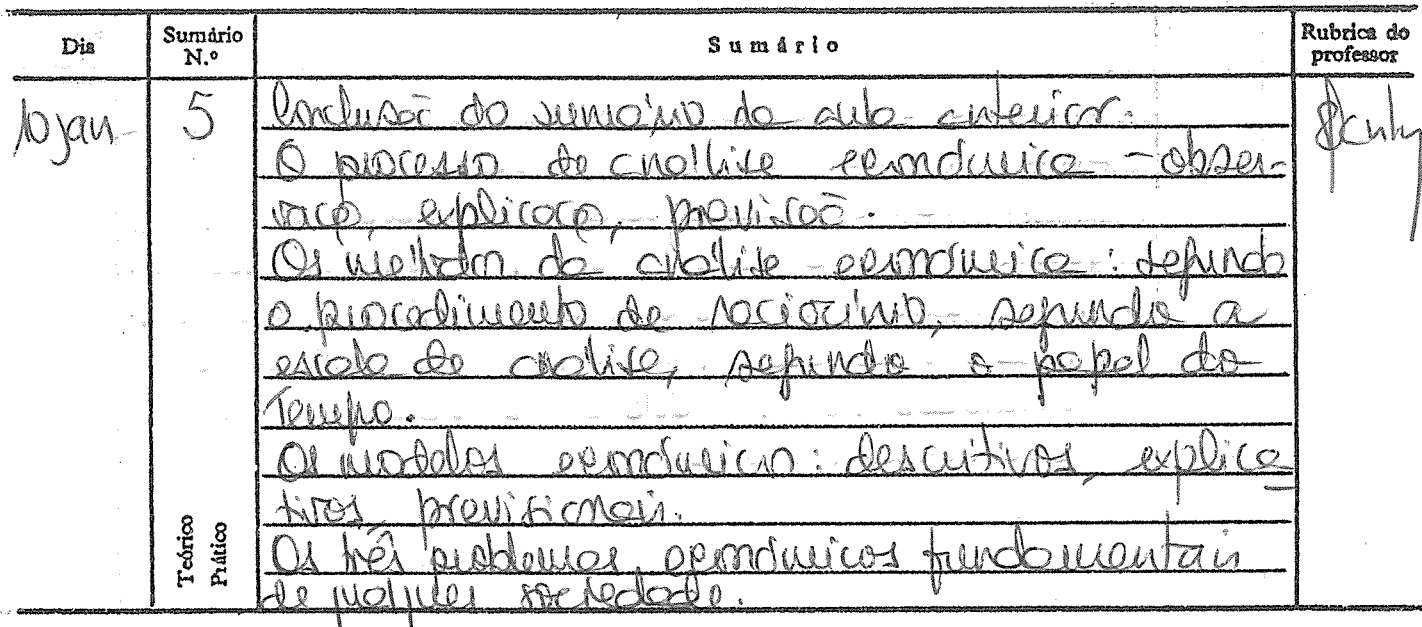 Dia Sumário N.º Sumário Rubrica do professor
10 jan 5 Conclusão do sumário da aula anterior.
O processo de análise económica - obser-
vação, explicação, previsão.
Os métodos de análise económica: segundo
o procedimento de raciocínio, segundo a
escala de análise, segundo o papel do
Tempo.
Os modelos económicos: descritivos, explica
tivos, previsionais.
Os três problemas económicos fundamentais
de qualquer sociedade.
Teórico
Prático